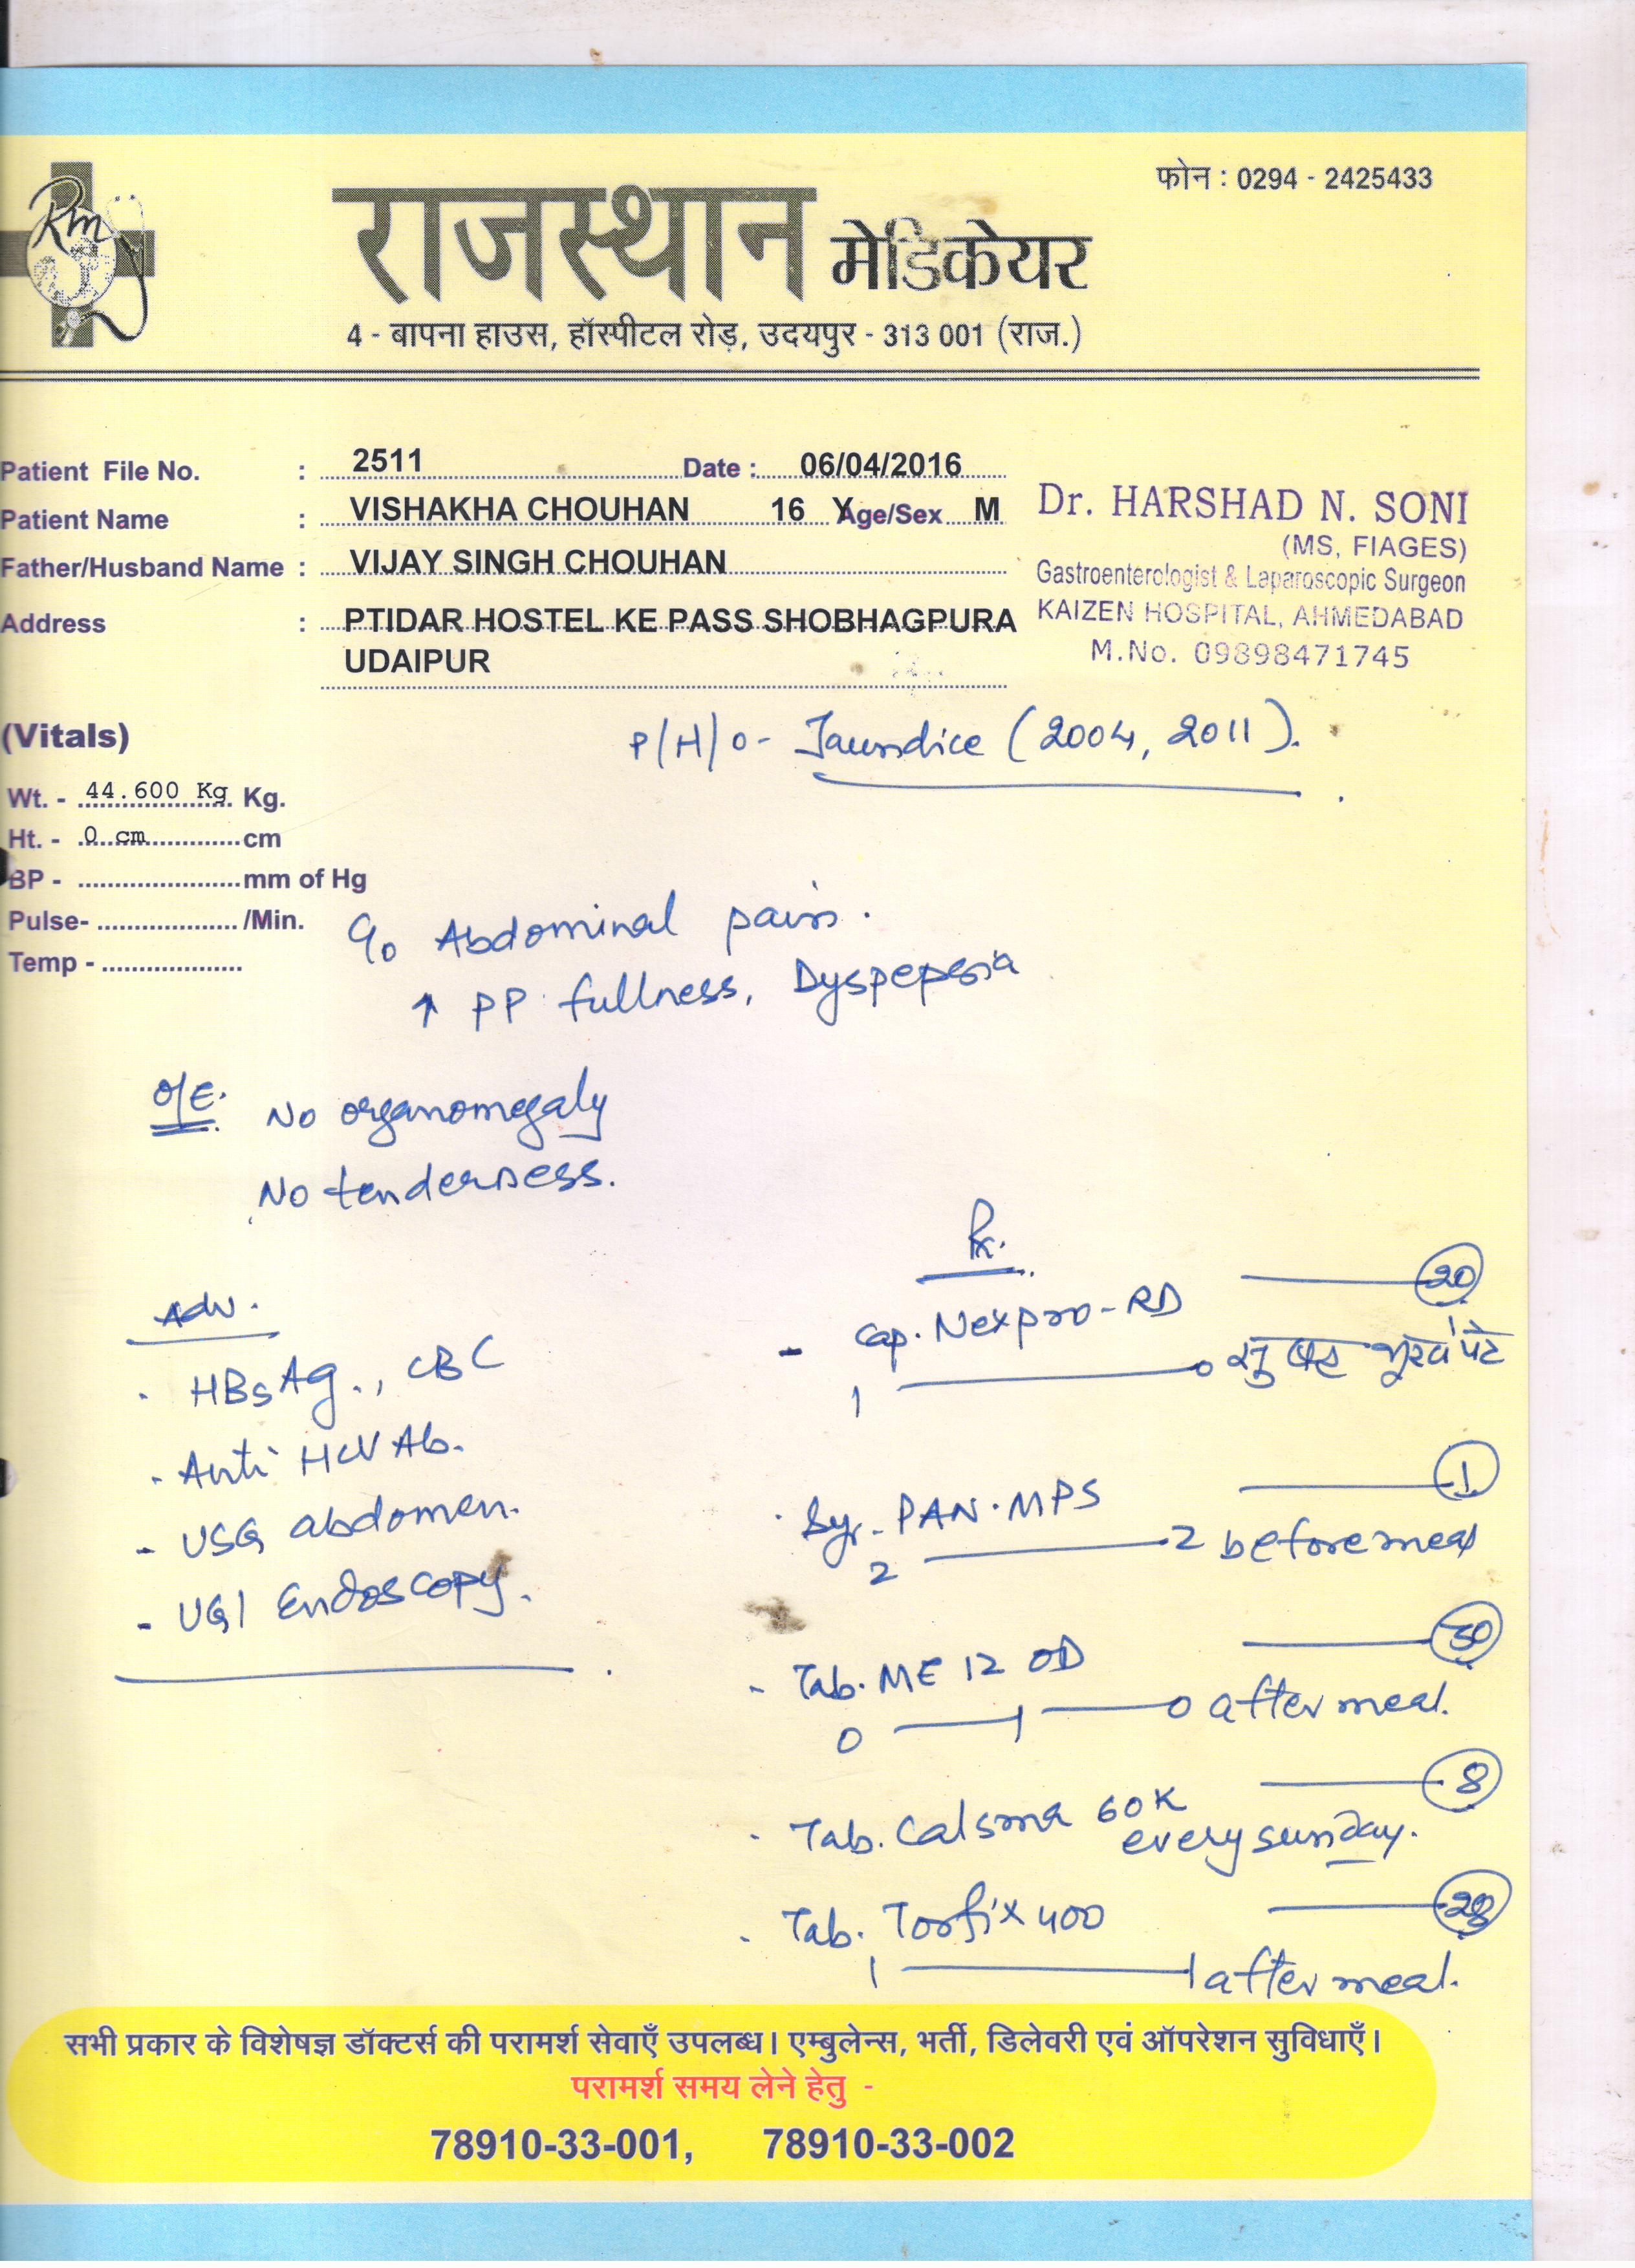 Rm
राजस्थान मेडिकेयर
फोन : 0294 - 2425433
4 - बापना हाउस, हॉस्पीटल रोड़, उदयपुर - 313 001 (राज.)
Patient File No. : 2511 Date : 06/04/2016
Patient Name : VISHAKHA CHOUHAN 16 Y Age/Sex M
Father/Husband Name : VIJAY SINGH CHOUHAN
Address : PTIDAR HOSTEL KE PASS SHOBHAGPURA
UDAIPUR
Dr. HARSHAD N. SONI
(MS, FIAGES)
Gastroenterologist & Laparoscopic Surgeon
KAIZEN HOSPITAL, AHMEDABAD
M.No. 09898471745
(Vitals)
P/H/o - Jaundice (2004, 2011).
Wt. - 44.600 Kg Kg.
Ht. - 0 cm cm
BP - mm of Hg
Pulse- /Min.
Temp -
c/o Abdominal pain.
↑ PP fullness, Dyspepsia
O/E. No organomegaly
No tenderness.
Adv.
- HBsAg., CBC
- Anti HCV Ab.
- USG abdomen.
- UGI Endoscopy.
Rx.
- Cap. Nexpro-RD 20
1 — 0 सुबह भूखे पेट
- Syr. PAN.MPS 1
2 — 2 before meal
- Tab. ME 12 OD 30
0 — 1 — 0 after meal.
- Tab. Calsma 60K 8
every sunday.
- Tab. Torfix 400 28
1 — 1 after meal.
सभी प्रकार के विशेषज्ञ डॉक्टर्स की परामर्श सेवाएँ उपलब्ध। एम्बुलेन्स, भर्ती, डिलेवरी एवं ऑपरेशन सुविधाएँ।
परामर्श समय लेने हेतु -
78910-33-001, 78910-33-002